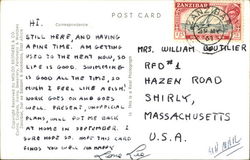 POST CARD
Correspondence
ZANZIBAR
HI.
STILL HERE, AND HAVING
A FINE TIME. AM GETTING
USED TO THE HEAT NOW, SO
LIFE IS GOOD. SWIMMING
IS GOOD ALL THE TIME, SO
MUCH I FEEL LIKE A FISH!
WORK GOES ON AND GOES
WELL. PRESENT, UNOFFICIAL
PLANS, WILL PUT ME BACK
AT HOME IN SEPTEMBER. I
SURE HOPE SO. HOPE THIS CARD
FINDS YOU WELL AND HAPPY
Love
MRS. WILLIAM BOUTILIER
RFD #1
HAZEN ROAD
SHIRLY,
MASSACHUSETTS
U.S.A.
This is a Real Photograph
AIR MAIL